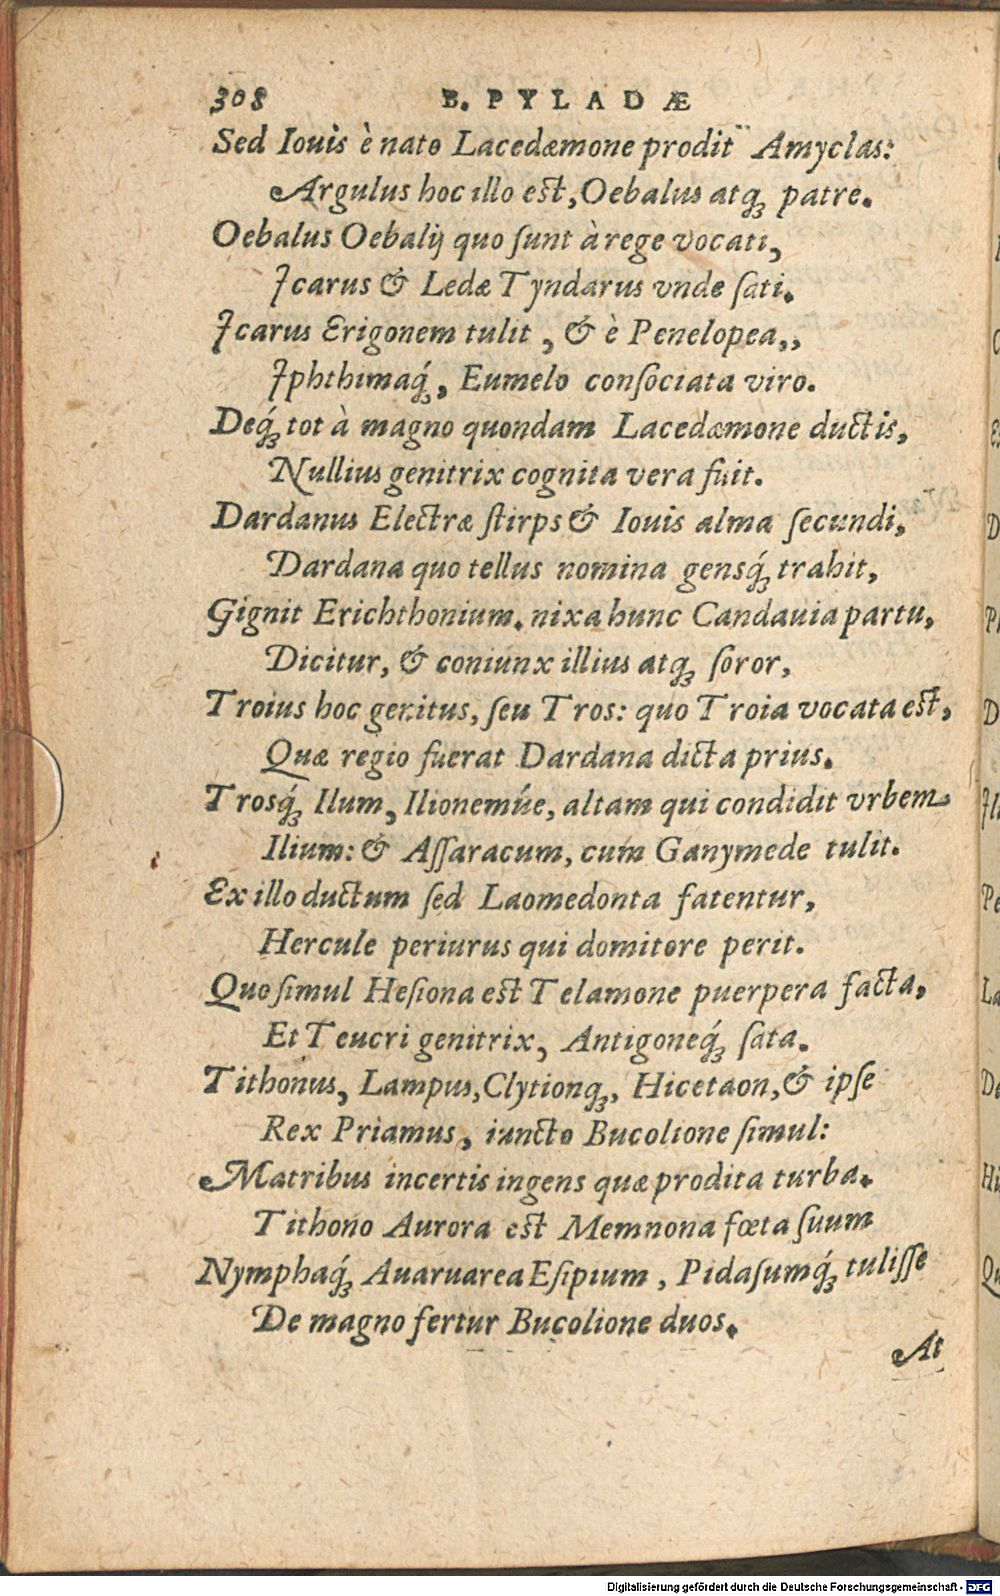 308 B. PYLADÆ
Sed Iouis è nato Lacedæmone prodit Amyclas:
Argulus hoc illo est, Oebalus atq; patre.
Oebalus Oebalij quo ſunt à rege vocati,
Icarus & Ledæ Tyndarus vnde ſati.
Icarus Erigonem tulit , & è Penelopea,,
Iphthimaq́;, Eumelo conſociata viro.
Deq́; tot à magno quondam Lacedæmone ductis,
Nullius genitrix cognita vera fuit.
Dardanus Electræ ſtirps & Iouis alma ſecundi,
Dardana quo tellus nomina gensq́; trahit,
Gignit Erichthonium. nixa hunc Candauia partu,
Dicitur, & coniunx illius atq; ſoror,
Troius hoc genitus, ſeu Tros: quo Troia vocata est,
Quæ regio fuerat Dardana dicta prius.
Trosq́; Ilum, Ilionemúe, altam qui condidit vrbem
Ilium: & Aſſaracum, cum Ganymede tulit.
Ex illo ductum ſed Laomedonta fatentur,
Hercule periurus qui domitore perit.
Quo ſimul Heſiona est Telamone puerpera facta,
Et Teucri genitrix, Antigoneq́; ſata.
Tithonus, Lampus, Clytionq;, Hicetaon, & ipſe
Rex Priamus, iuncto Bucolione ſimul:
Matribus incertis ingens quæ prodita turba.
Tithono Aurora est Memnona fœta ſuum
Nymphaq́; Auaruarea Eſipium , Pidaſumq́; tuliſſe
De magno fertur Bucolione duos.
At
Digitalisierung gefördert durch die Deutsche Forschungsgemeinschaft - DFG